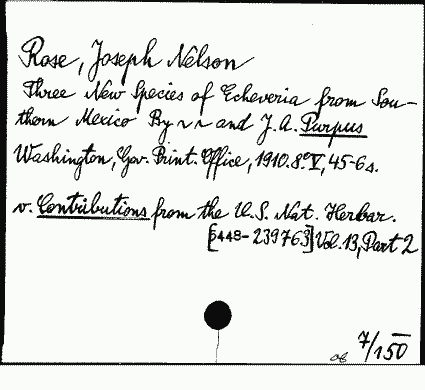 Rose, Joseph Nelson
Three New Species of Echeveria from Sou-
thern Mexico By rr and J.A. Purpus
Washington, Gov. Print. Office, 1910. 8° V, 45-6 s.
v. Contributions from the U.S. Nat. Herbar.
[5448-239763] Vol. 13, Part 2
7/150